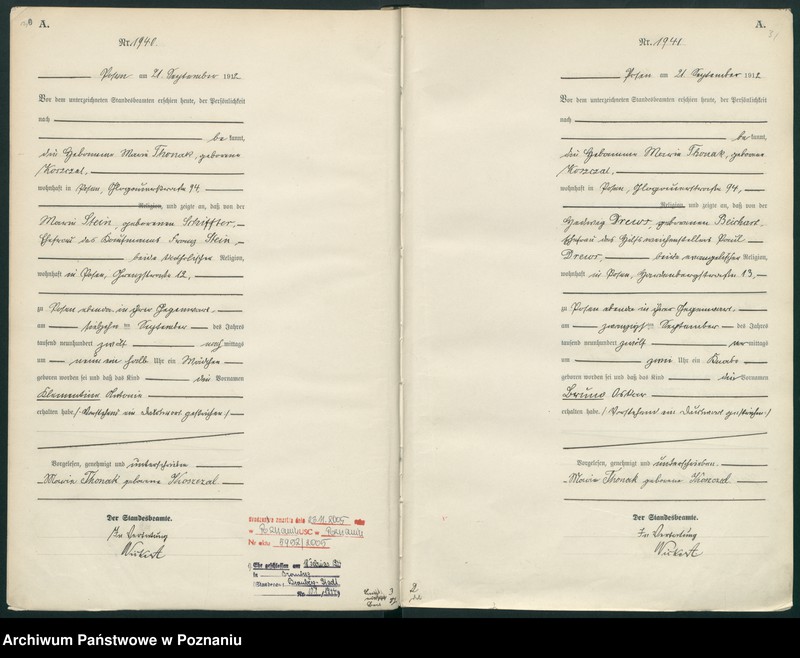 A.
Nr. 1940.
Posen am 21. September 1912
Vor dem unterzeichneten Standesbeamten erschien heute, der Persönlichkeit
nach
be kannt,
die Hebamme Marie Thonak, geborene
wohnhaft in Posen, Glogauerstraße 94
Religion, und zeigte an, daß von der
Marie Stein, geborenen Schiffter,
Ehefrau des Kaufmanns Franz Stein,
beide katholischer Religion,
wohnhaft in Posen, 12,
zu Posen ebenda in ihrer Gegenwart
am September des Jahres
tausend neunhundert zwölf nachmittags
um neun ein halb Uhr ein Mädchen
geboren worden sei und daß das Kind den Vornamen
Klementine Antonie
erhalten habe. /: Vorstehend ein Druckwort gestrichen :/
Vorgelesen, genehmigt und unterschrieben
Marie Thonak geborene
Der Standesbeamte.
In Vertretung
USC
Nr aktu 2005
Ehe geschlossen am
A.
Nr. 1941.
Posen am 21. September 1912
Vor dem unterzeichneten Standesbeamten erschien heute, der Persönlichkeit
nach
be kannt,
die Hebamme Marie Thonak, geborene
wohnhaft in Posen, Glogauerstraße 94,
Religion, und zeigte an, daß von der
Hedwig Drews, geborenen
Ehefrau des Hilfsweichenstellers Paul
Drews, beide evangelischer Religion,
wohnhaft in Posen, Hardenbergstraße 13,
zu Posen ebenda in ihrer Gegenwart
am zwanzigsten September des Jahres
tausend neunhundert zwölf vormittags
um zwei Uhr ein Knabe
geboren worden sei und daß das Kind die Vornamen
Bruno Oskar
erhalten habe. /: Vorstehend ein Druckwort gestrichen :/
Vorgelesen, genehmigt und unterschrieben
Marie Thonak geborene
Der Standesbeamte.
In Vertretung
Archiwum Państwowe w Poznaniu